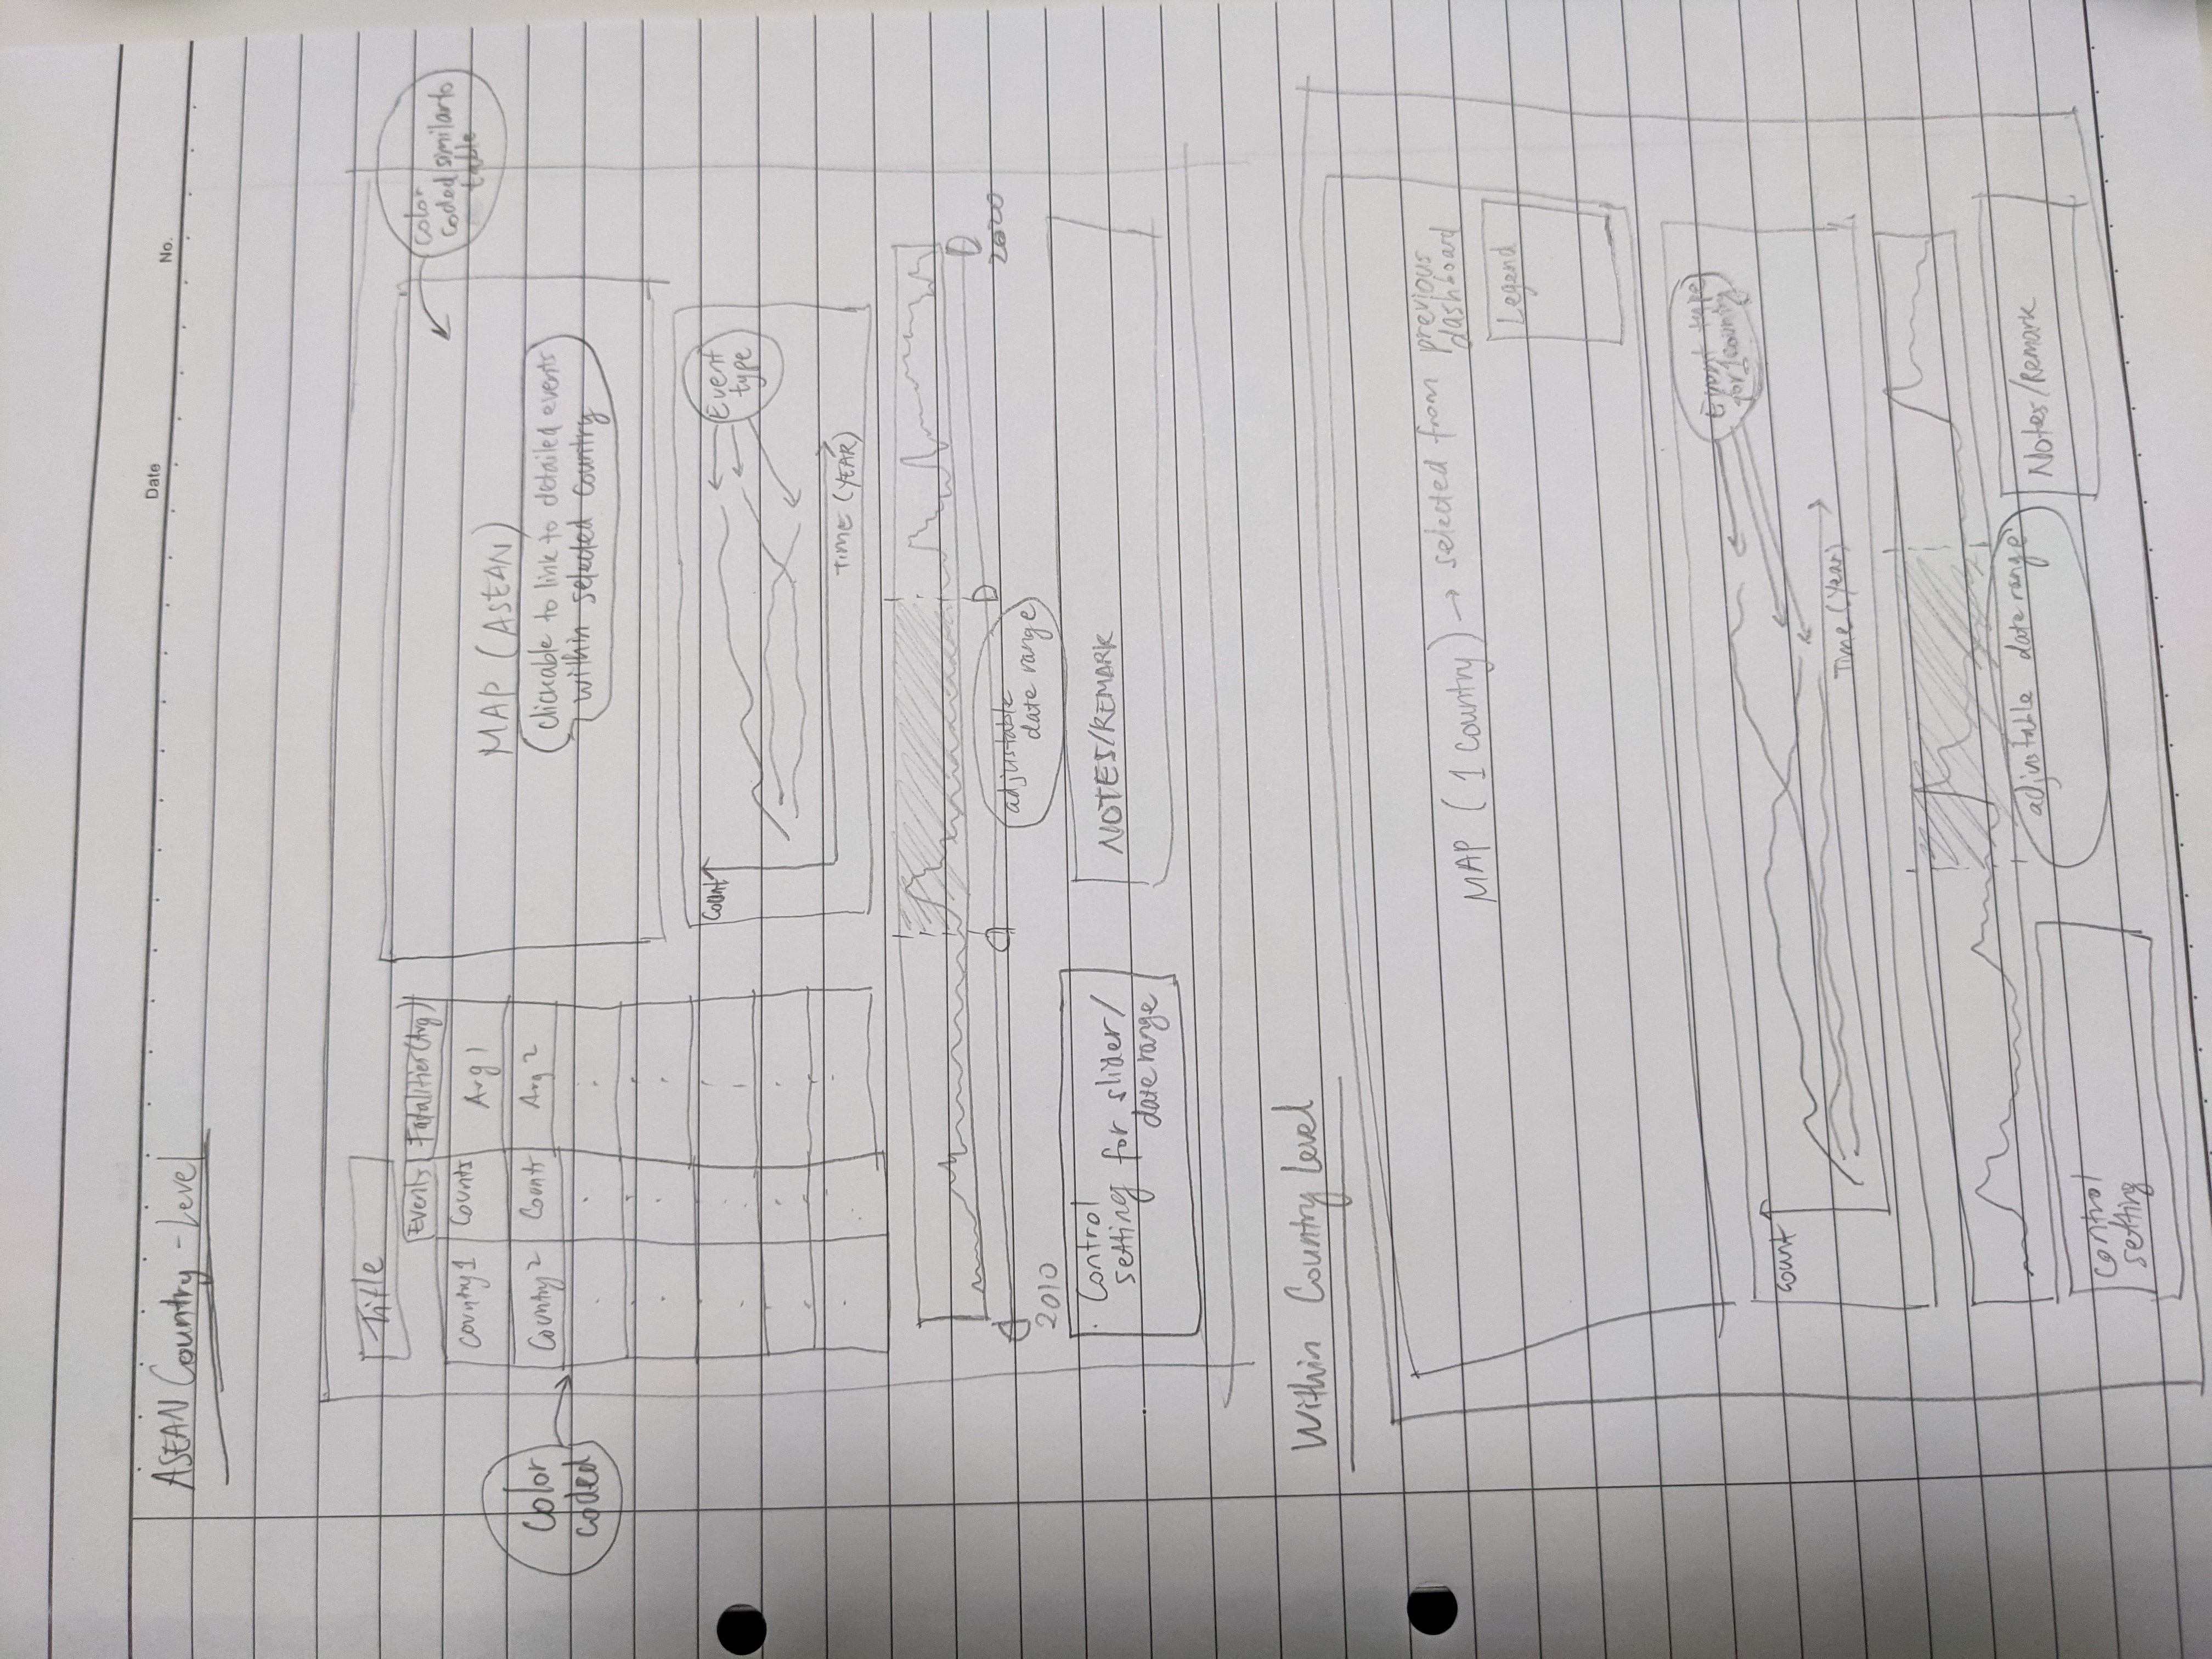 Date
No.
ASEAN Country-Level
Title
Events
Fatalities (Avg)
Country 1
Counts
Avg 1
Country 2
Counts
Avg 2
color
coded
color
coded similar to
table
MAP (ASEAN)
clickable to link to detailed events
within selected country
Count
Event
type
TIME (YEAR)
2010
2020
adjustable
date range
Control
setting for slider/
date range
NOTES/REMARK
Within Country Level
MAP (1 Country) → selected from previous
dashboard
Legend
Event type
for 1 country
count
Time (Year)
adjustable date range
Notes/Remark
Control
setting